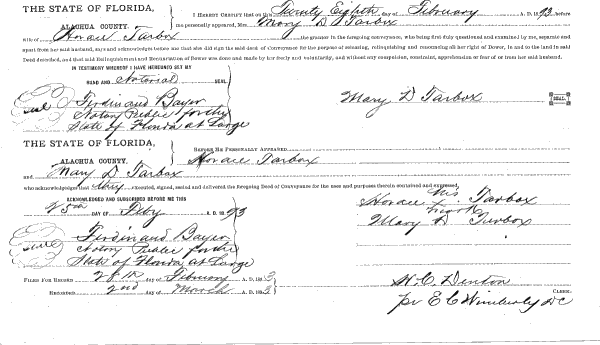 THE STATE OF FLORIDA, I HEREBY CERTIFY that on this Twenty Eighth day of February A. D. 1893, before
ALACHUA COUNTY. me personally appeared, Mrs. Mary D Tarbox
Wife of Horace Tarbox the grantor in the foregoing conveyance, who being first duly questioned and examined by me, separate and
apart from her said husband, says and acknowledges before me that she did sign the said deed of Conveyance for the purpose of releasing, relinquishing and renouncing all her right of Dower, in and to the land in said
Deed described, and that said Relinquishment and Renunciation of Dower was done and made by her freely and voluntarily, and without any compulsion, constraint, apprehension or fear of or from her said husband.
IN TESTIMONY WHEREOF I HAVE HEREUNTO SET MY
HAND AND Notorial SEAL
Seal Ferdinand Bayer
Notary Public for the
State of Florida at Large
Mary D Tarbox SEAL.
THE STATE OF FLORIDA,
ALACHUA COUNTY. BEFORE ME PERSONALLY APPEARED Horace Tarbox
and Mary D Tarbox
who acknowledged that they executed, signed, sealed and delivered the foregoing Deed of Conveyance for the uses and purposes therein contained and expressed.
ACKNOWLEDGED AND SUBSCRIBED BEFORE ME THIS
25th DAY OF Feby A. D. 1893
Horace his x mark Tarbox
Mary D Tarbox
Seal Ferdinand Bayer
Notary Public for the
State of Florida at Large
FILED FOR RECORD 28th day of February A. D. 1893
RECORDED 2nd day of March A. D. 1893
H. C. Denton CLERK.
pr E C Wimberly DC